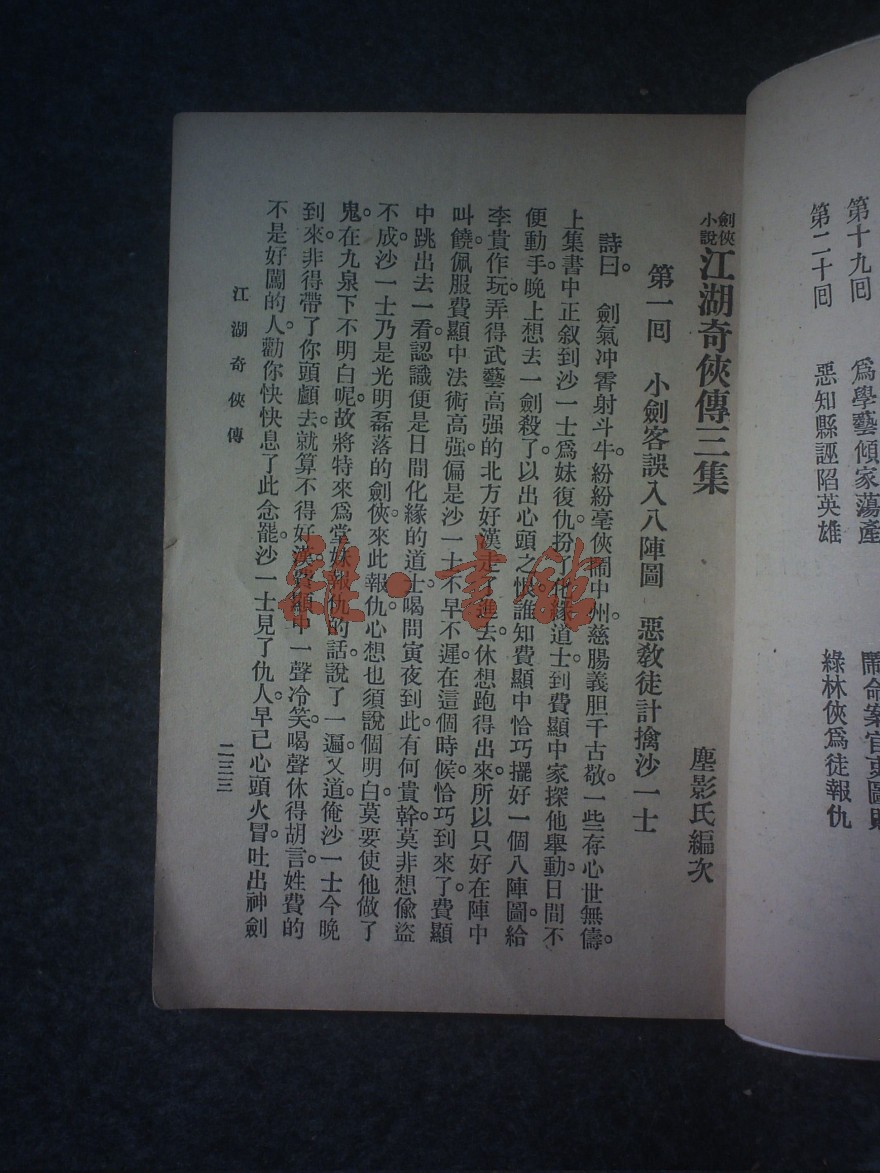 第十九回　爲學藝傾家蕩產　鬧命案官吏圖
第二十回　惡知縣誣陷英雄　綠林俠爲徒報仇
劍俠小說 江湖奇俠傳三集
塵影氏編次
第一回　小劍客誤入八陣圖　惡敎徒計擒沙一士
詩曰。　劍氣冲霄射斗牛。紛紛毫俠鬧中州。慈腸義胆千古敬。一些存心世無儔。
上集書中正叙到沙一士爲妹復仇扮了化緣道士。到費顯中家探他舉動。日間不
便動手。晚上想去一劍殺了。以出心頭之恨。誰知費顯中恰巧擺好一個八陣圖。給
李貴作玩。弄得武藝高强的北方好漢。走了進去。休想跑得出來。所以只好在陣中
叫饒。佩服費顯中法術高强。偏是沙一士不早不遲。在這個時候。恰巧到來了。費顯
中跳出去一看。認識便是日間化緣的道士。喝問寅夜到此。有何貴幹。莫非想偸盜
不成。沙一士乃是光明磊落的劍俠。來此報仇。心想也須說個明白。莫要使他做了
鬼。在九泉下不明白呢。故將特來爲堂妹報仇的話。說了一遍。又道。俺沙一士今晚
到來。非得帶了你頭顱去。就算不得好漢。費顯中一聲冷笑。喝聲休得胡言。姓費的
不是好闖的人。勸你快快息了此念罷。沙一士見了仇人。早已心頭火冒。吐出神劍
江湖奇俠傳
二三三
雜·書館